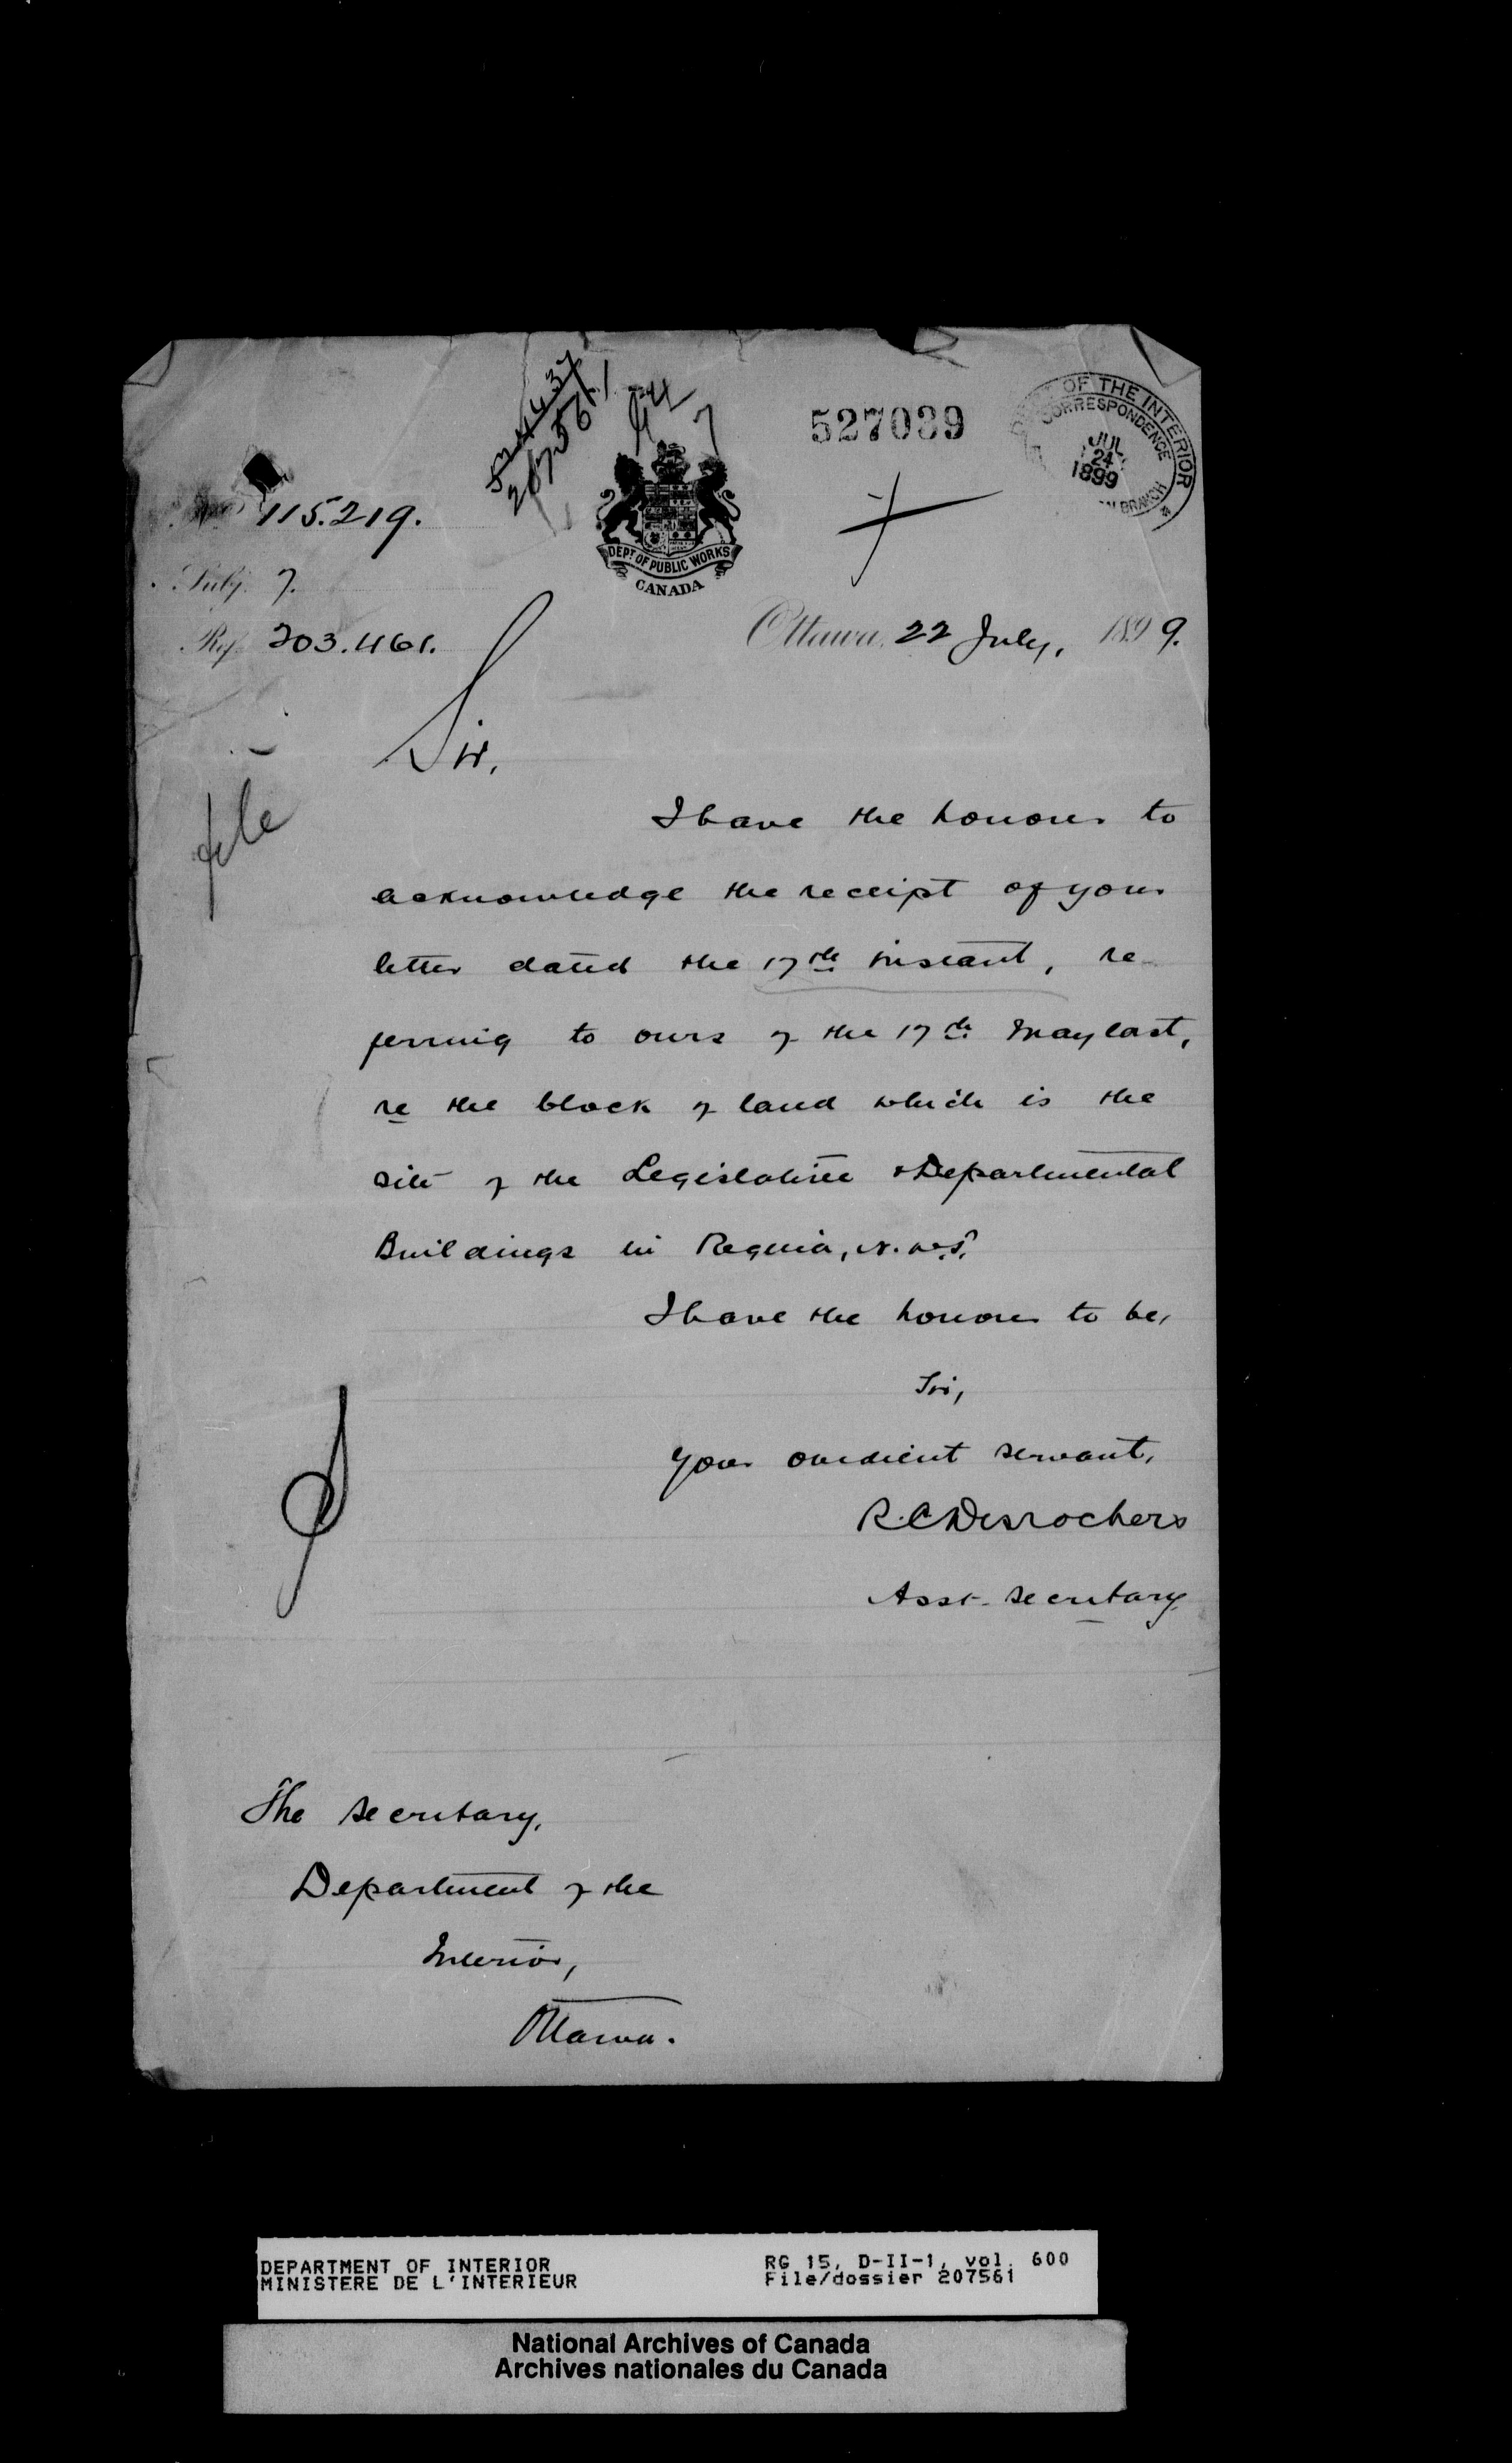 207561
527039
DEPT OF THE INTERIOR
CORRESPONDENCE
JUL
24
1899
BRANCH
No 115.219.
Subj. 7.
Ref. 203.461.
DEPT OF PUBLIC WORKS
CANADA
Ottawa, 22 July, 1899.
file
Sir,
I have the honour to
acknowledge the receipt of your
letter dated the 17th instant, re
ferring to ours of the 17th May last,
re the block of land which is the
site of the Legislative & Departmental
Buildings in Regina, N.W.T.
I have the honour to be,
Sir,
Your obedient servant,
R.C Desrochers
Asst. Secretary
The Secretary,
Department of the
Interior,
Ottawa.
DEPARTMENT OF INTERIOR
MINISTERE DE L'INTERIEUR
RG 15, D-II-1, vol. 600
File/dossier 207561
National Archives of Canada
Archives nationales du Canada